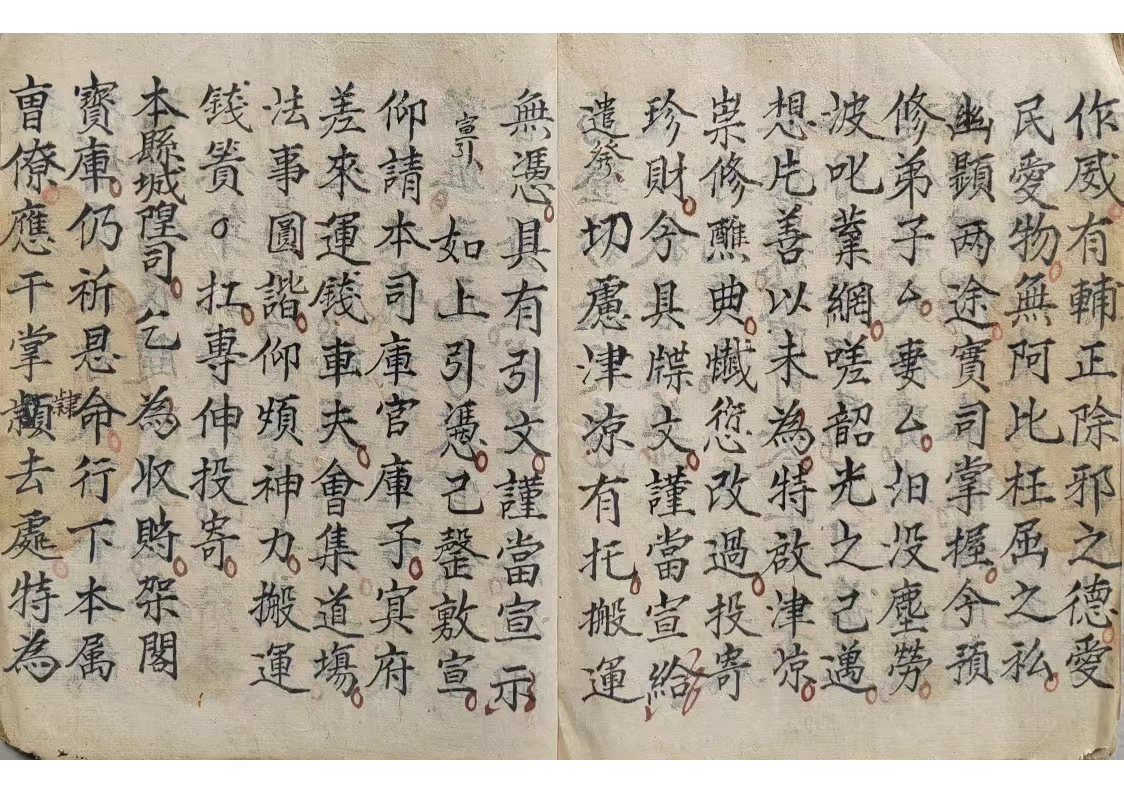 作威有輔正除邪之德愛
民愛物無阿比枉屈之私
幽顯两途實司掌握今預
修弟子厶妻厶汨没塵勞
波叱業網嗟韶光之己邁
想片善以未為特啟津凉
崇修醮典懺愆改過投寄
珍財兮具牒文謹當宣給
遣發 切慮津凉有托搬運
無憑具有引文謹當宣示
宣引 如上引憑己罄敷宣
仰請本司庫官庫子㝠府
差來運錢車夫會集道場
法事圓諧仰煩神力搬運
錢簣扛專伸投寄
本縣城隍司乞為収貯架閣
寳庫仍祈恩命行下本属
曺僚應干掌隸去處特為